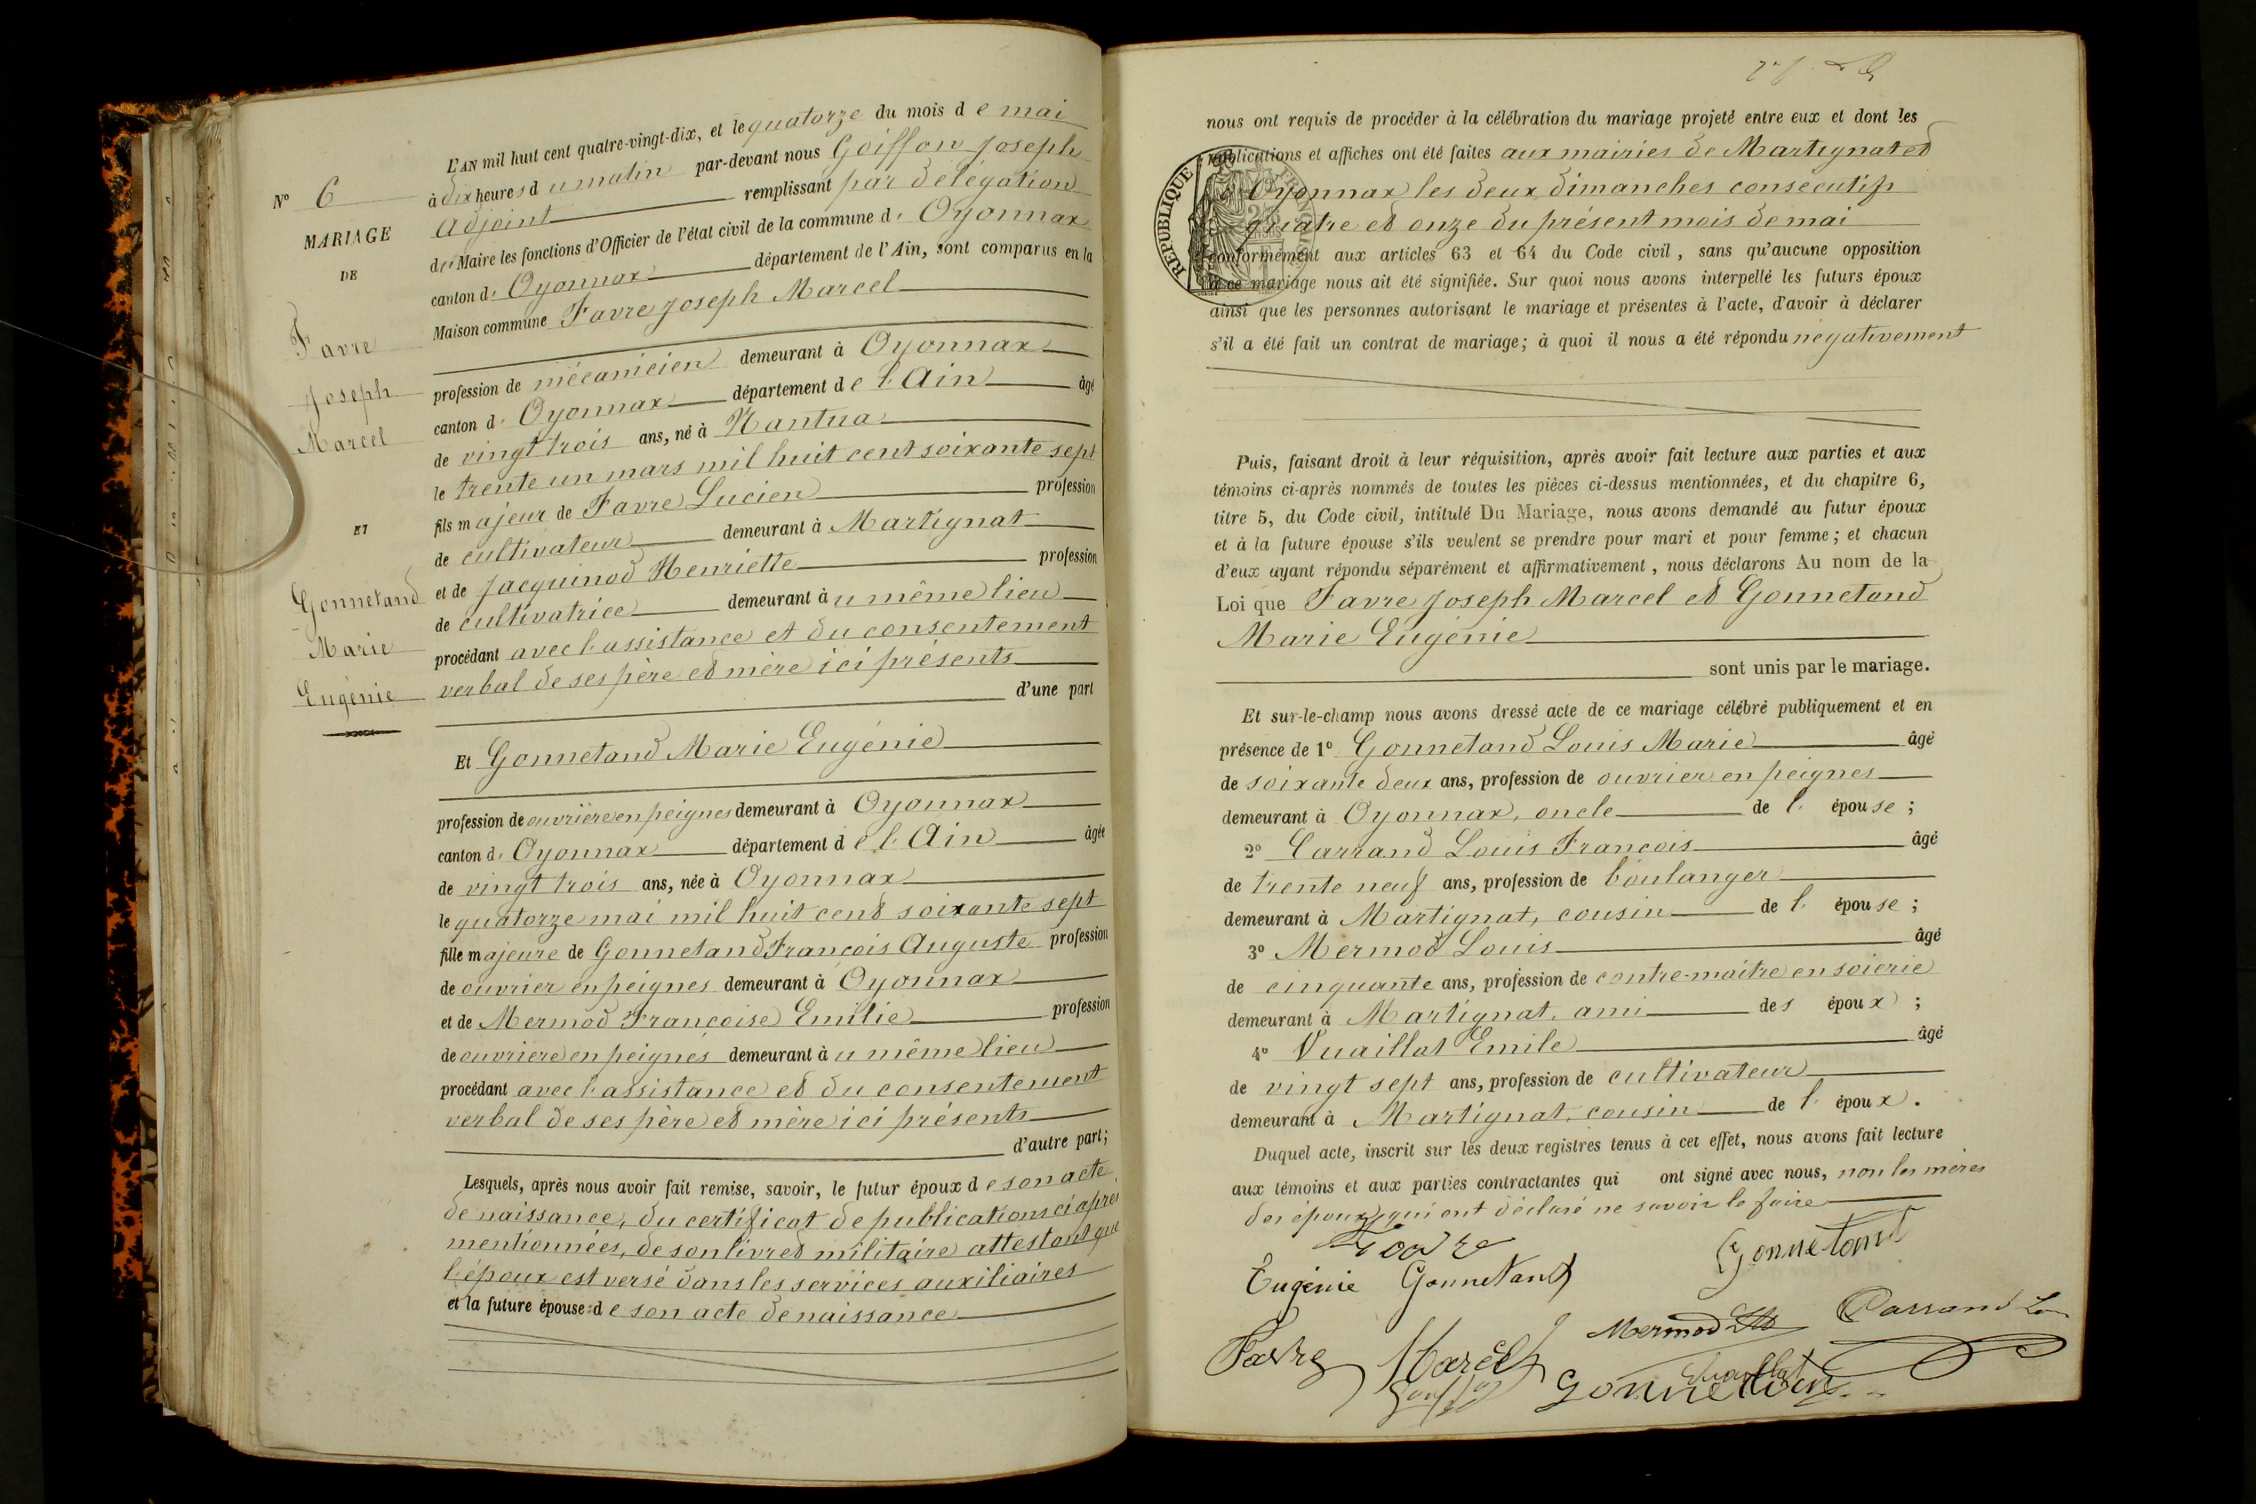 N° 6
MARIAGE
DE
Favre
Joseph
Marcel
ET
Gonnetand
Marie
Eugénie
L'AN mil huit cent quatre-vingt-dix, et le quatorze du mois de mai
à dix heures du matin par-devant nous Goiffon Joseph
adjoint remplissant par délégation
de Maire les fonctions d'Officier de l'état civil de la commune d' Oyonnax
canton d' Oyonnax département de l'Ain, sont comparus en la
Maison commune Favre Joseph Marcel
profession de mécanicien demeurant à Oyonnax
canton d' Oyonnax département de l'Ain âgé
de vingt trois ans, né à Nantua
le trente un mars mil huit cent soixante sept
fils majeur de Favre Lucien profession
de cultivateur demeurant à Martignat
et de Jacquinod Henriette profession
de cultivatrice demeurant à u même lieu
procédant avec l'assistance et du consentement
verbal de ses père et mère ici présents
d'une part
Et Gonnetand Marie Eugénie
profession de ouvrière en peignes demeurant à Oyonnax
canton d' Oyonnax département de l'Ain âgée
de vingt trois ans, née à Oyonnax
le quatorze mai mil huit cent soixante sept
fille majeure de Gonnetand François Auguste profession
de ouvrier en peignes demeurant à Oyonnax
et de Mermod Françoise Emilie profession
de ouvrière en peignes demeurant à u même lieu
procédant avec l'assistance et du consentement
verbal de ses père et mère ici présents
d'autre part;
Lesquels, après nous avoir fait remise, savoir, le futur époux de son acte
de naissance, du certificat de publications ci après
mentionnées, de son livret militaire attestant que
l'époux est versé dans les services auxiliaires
et la future épouse de son acte de naissance
nous ont requis de procéder à la célébration du mariage projeté entre eux et dont les
publications et affiches ont été faites aux mairies de Martignat et
Oyonnax les deux dimanches consécutifs
quatre et onze du présent mois de mai
conformément aux articles 63 et 64 du Code civil, sans qu'aucune opposition
à ce mariage nous ait été signifiée. Sur quoi nous avons interpellé les futurs époux
ainsi que les personnes autorisant le mariage et présentes à l'acte, d'avoir à déclarer
s'il a été fait un contrat de mariage; à quoi il nous a été répondu négativement
RÉPUBLIQUE FRANÇAISE
Puis, faisant droit à leur réquisition, après avoir fait lecture aux parties et aux
témoins ci-après nommés de toutes les pièces ci-dessus mentionnées, et du chapitre 6,
titre 5, du Code civil, intitulé Du Mariage, nous avons demandé au futur époux
et à la future épouse s'ils veulent se prendre pour mari et pour femme; et chacun
d'eux ayant répondu séparément et affirmativement, nous déclarons Au nom de la
Loi que Favre Joseph Marcel et Gonnetand
Marie Eugénie
sont unis par le mariage.
Et sur-le-champ nous avons dressé acte de ce mariage célébré publiquement et en
présence de 1° Gonnetand Louis Marie âgé
de soixante deux ans, profession de ouvrier en peignes
demeurant à Oyonnax, oncle de l' épouse;
2° Carrand Louis François âgé
de trente neuf ans, profession de boulanger
demeurant à Martignat, cousin de l' épouse;
3° Mermod Louis âgé
de cinquante ans, profession de contre-maître en soierie
demeurant à Martignat, ami des époux;
4° Vuaillat Emile âgé
de vingt sept ans, profession de cultivateur
demeurant à Martignat, cousin de l' époux.
Duquel acte, inscrit sur les deux registres tenus à cet effet, nous avons fait lecture
aux témoins et aux parties contractantes qui ont signé avec nous, non les mères
des époux, qui ont déclaré ne savoir le faire
Favre
Gonnetand
Eugénie Gonnetand
Mermod
Carrand
Favre Marcel
Vuaillat
Goiffon
Gonnetand